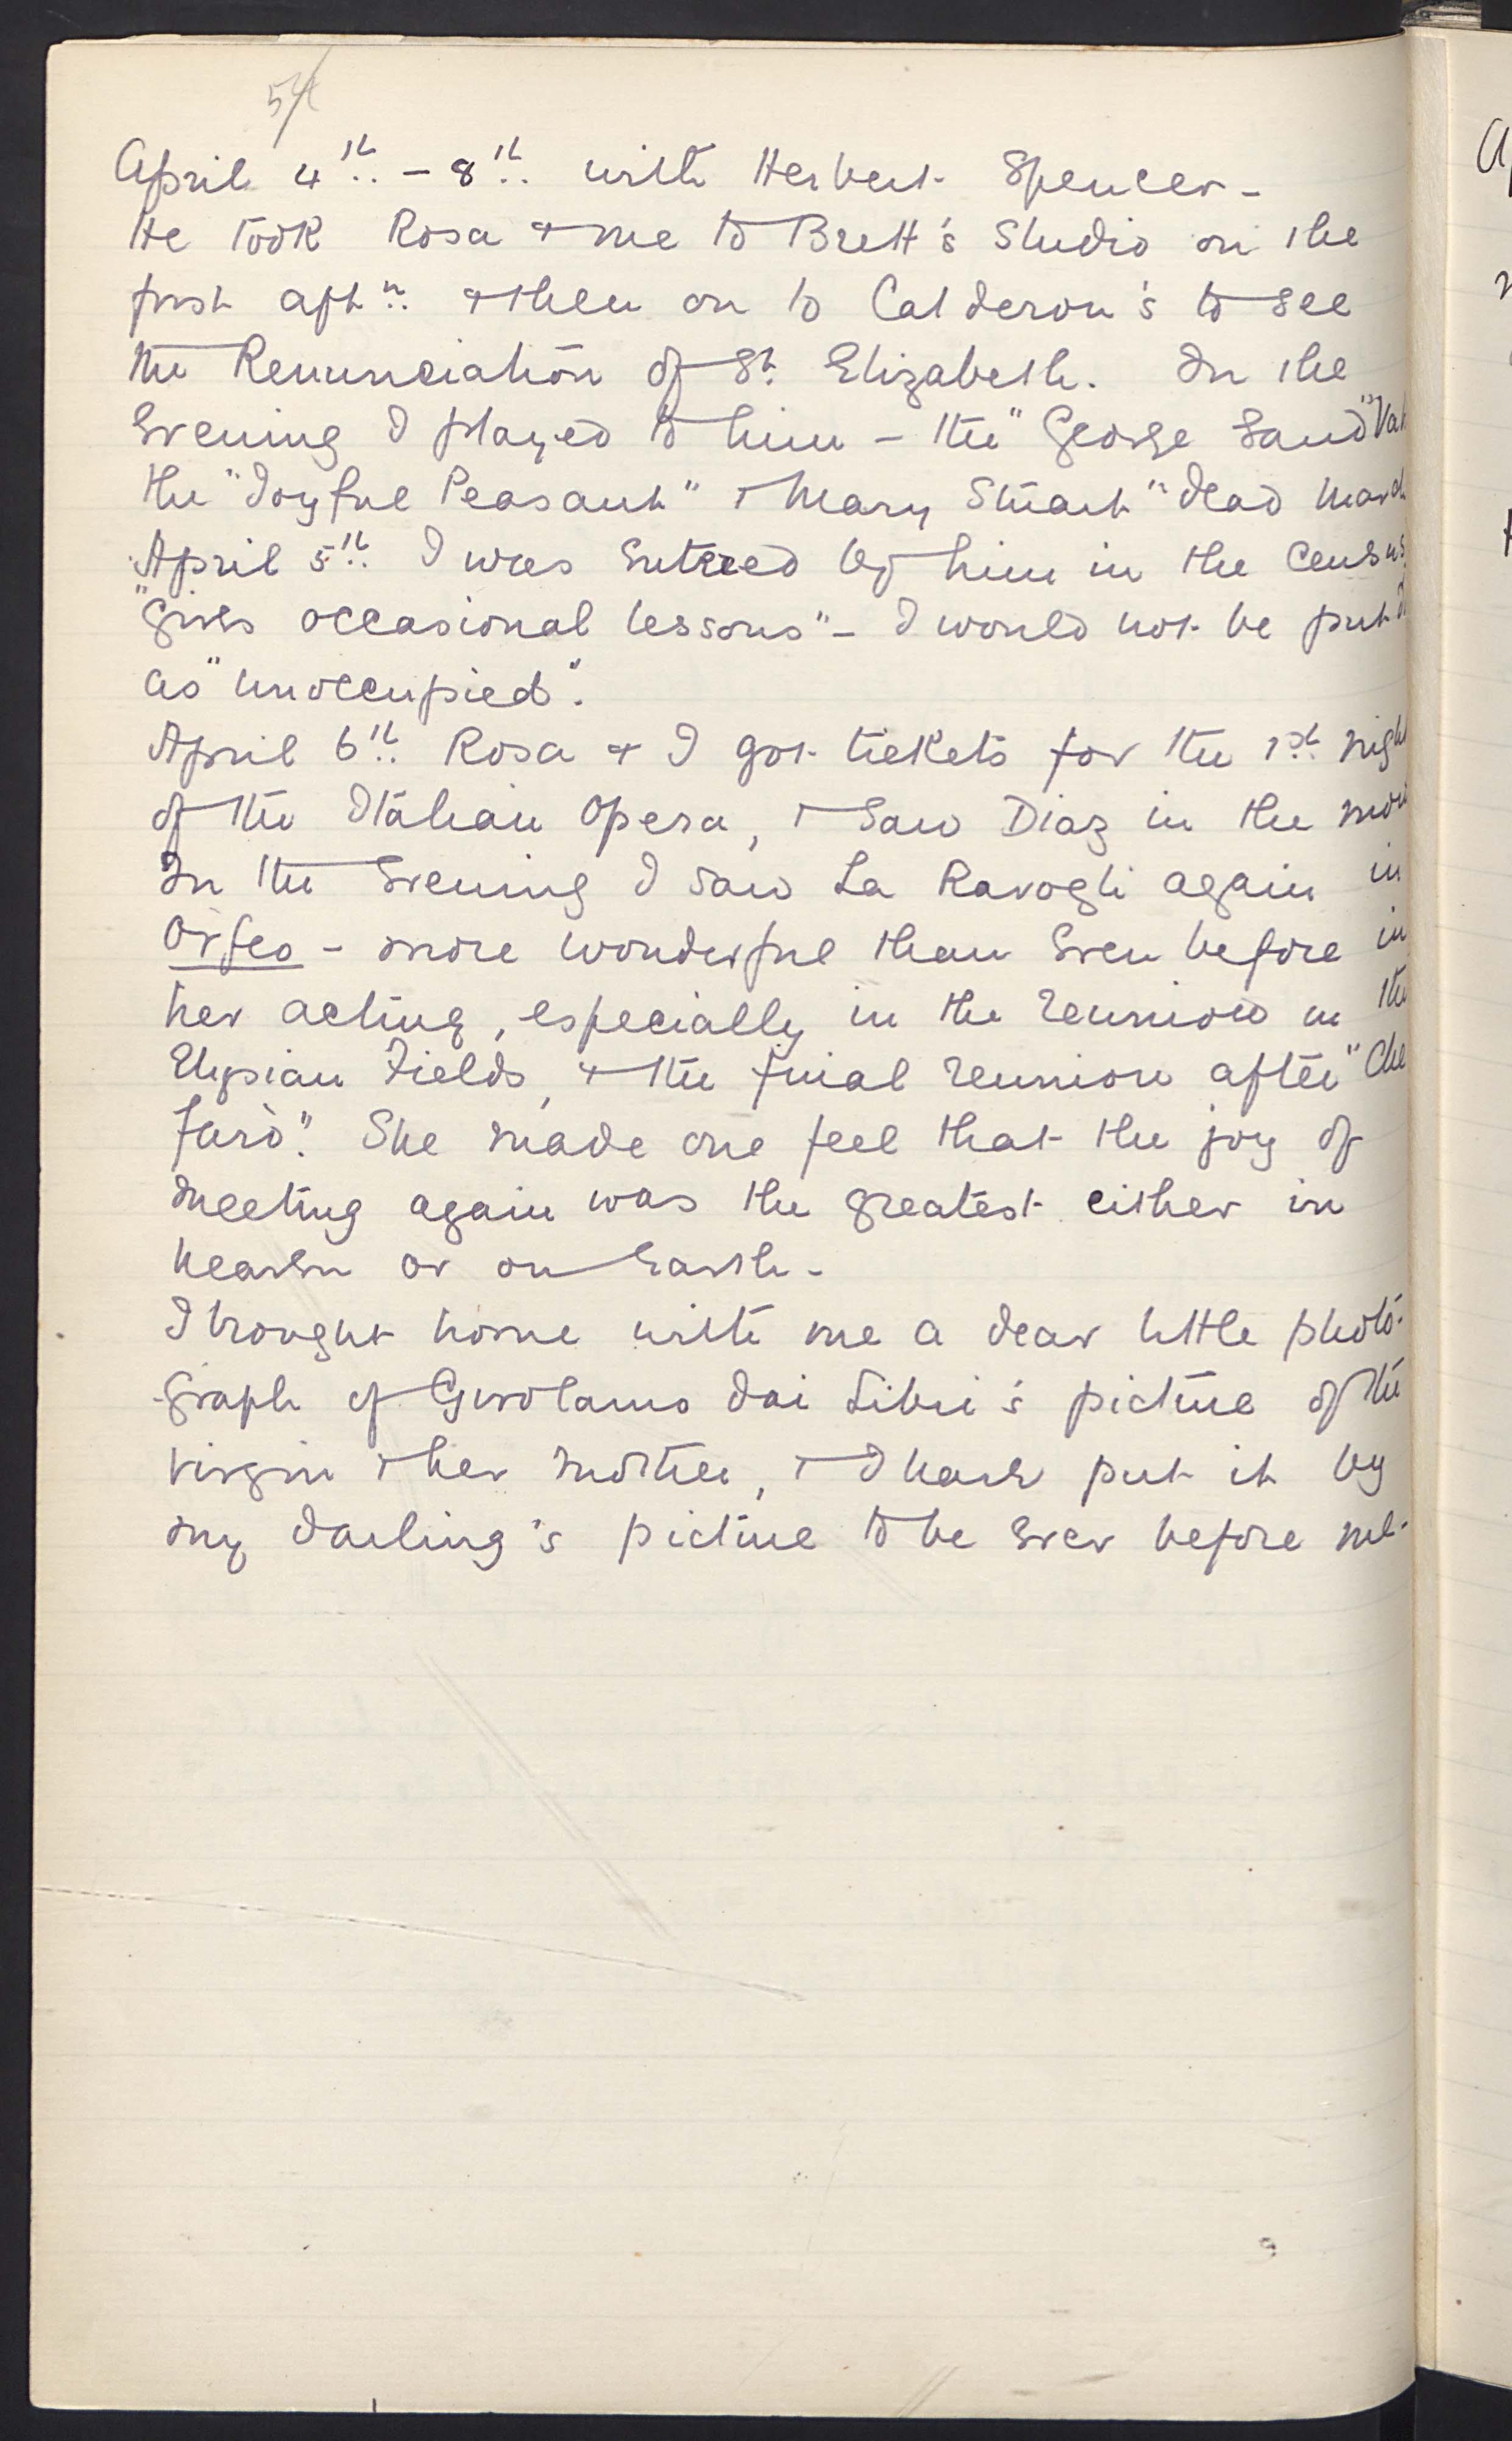 54
April 4th. – 8th. with Herbert Spencer –
He took Rosa & me to Brett's Studio on the
first aftn. & then on to Calderon's to see
the Renunciation of St. Elizabeth. In the
Evening I played to him – the "George Sand" Val
the "Joyful Peasant" & Mary Stuart" dead March
April 5th. I was Entered by him in the Census
"gives occasional lessons" – I would not be put
as "unoccupied".
April 6th. Rosa & I got tickets for the 1st. night
of the Italian Opera, & saw Diaz in the
In the Evening I saw La Ravogli again in
Orfeo – more wonderful than Even before in
her acting, especially in the reunion in the
Elysian Fields, & the final reunion after "Che
farò". She made one feel that the joy of
meeting again was the greatest either in
heaven or on Earth –
I brought home with me a dear little photo-
-graph of Girolamo dai Libri's picture of the
Virgin & her Mother, & I have put it by
my darling's picture to be Ever before me.